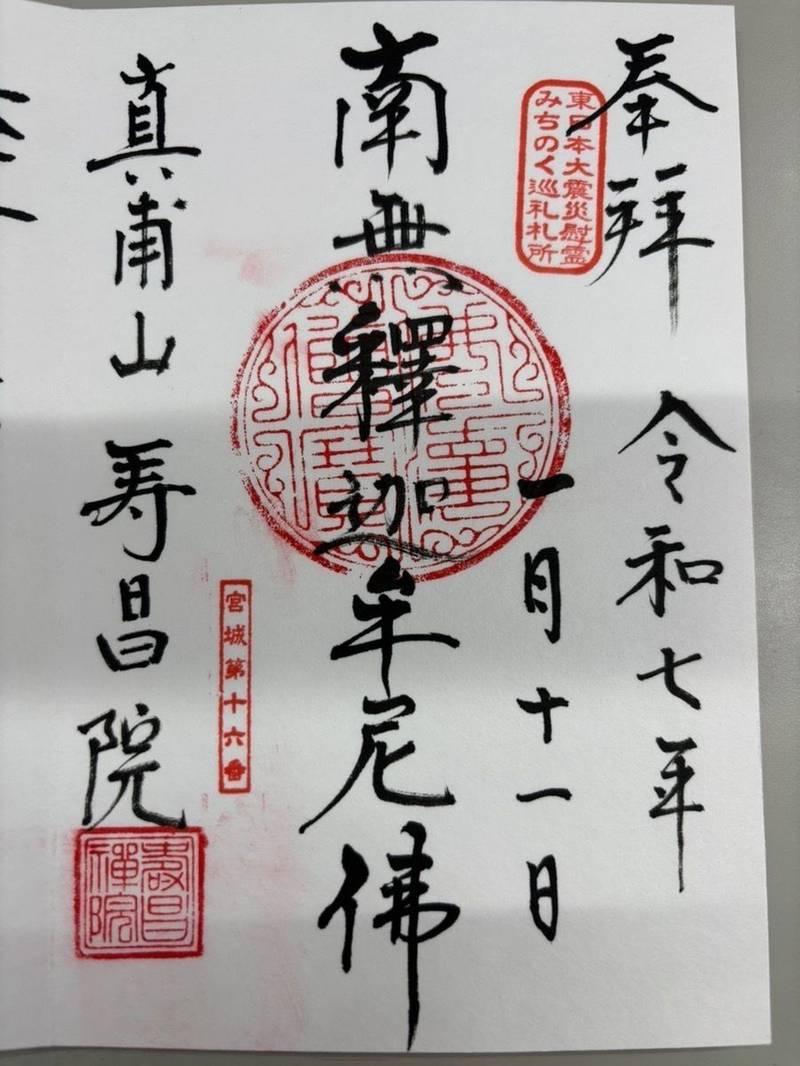 奉拝 令和七年
東日本大震災慰霊
みちのく巡礼札所
一月十一日
南無釋迦牟尼佛
宮城第十六番
真甫山 寿昌院
壽昌
禪院